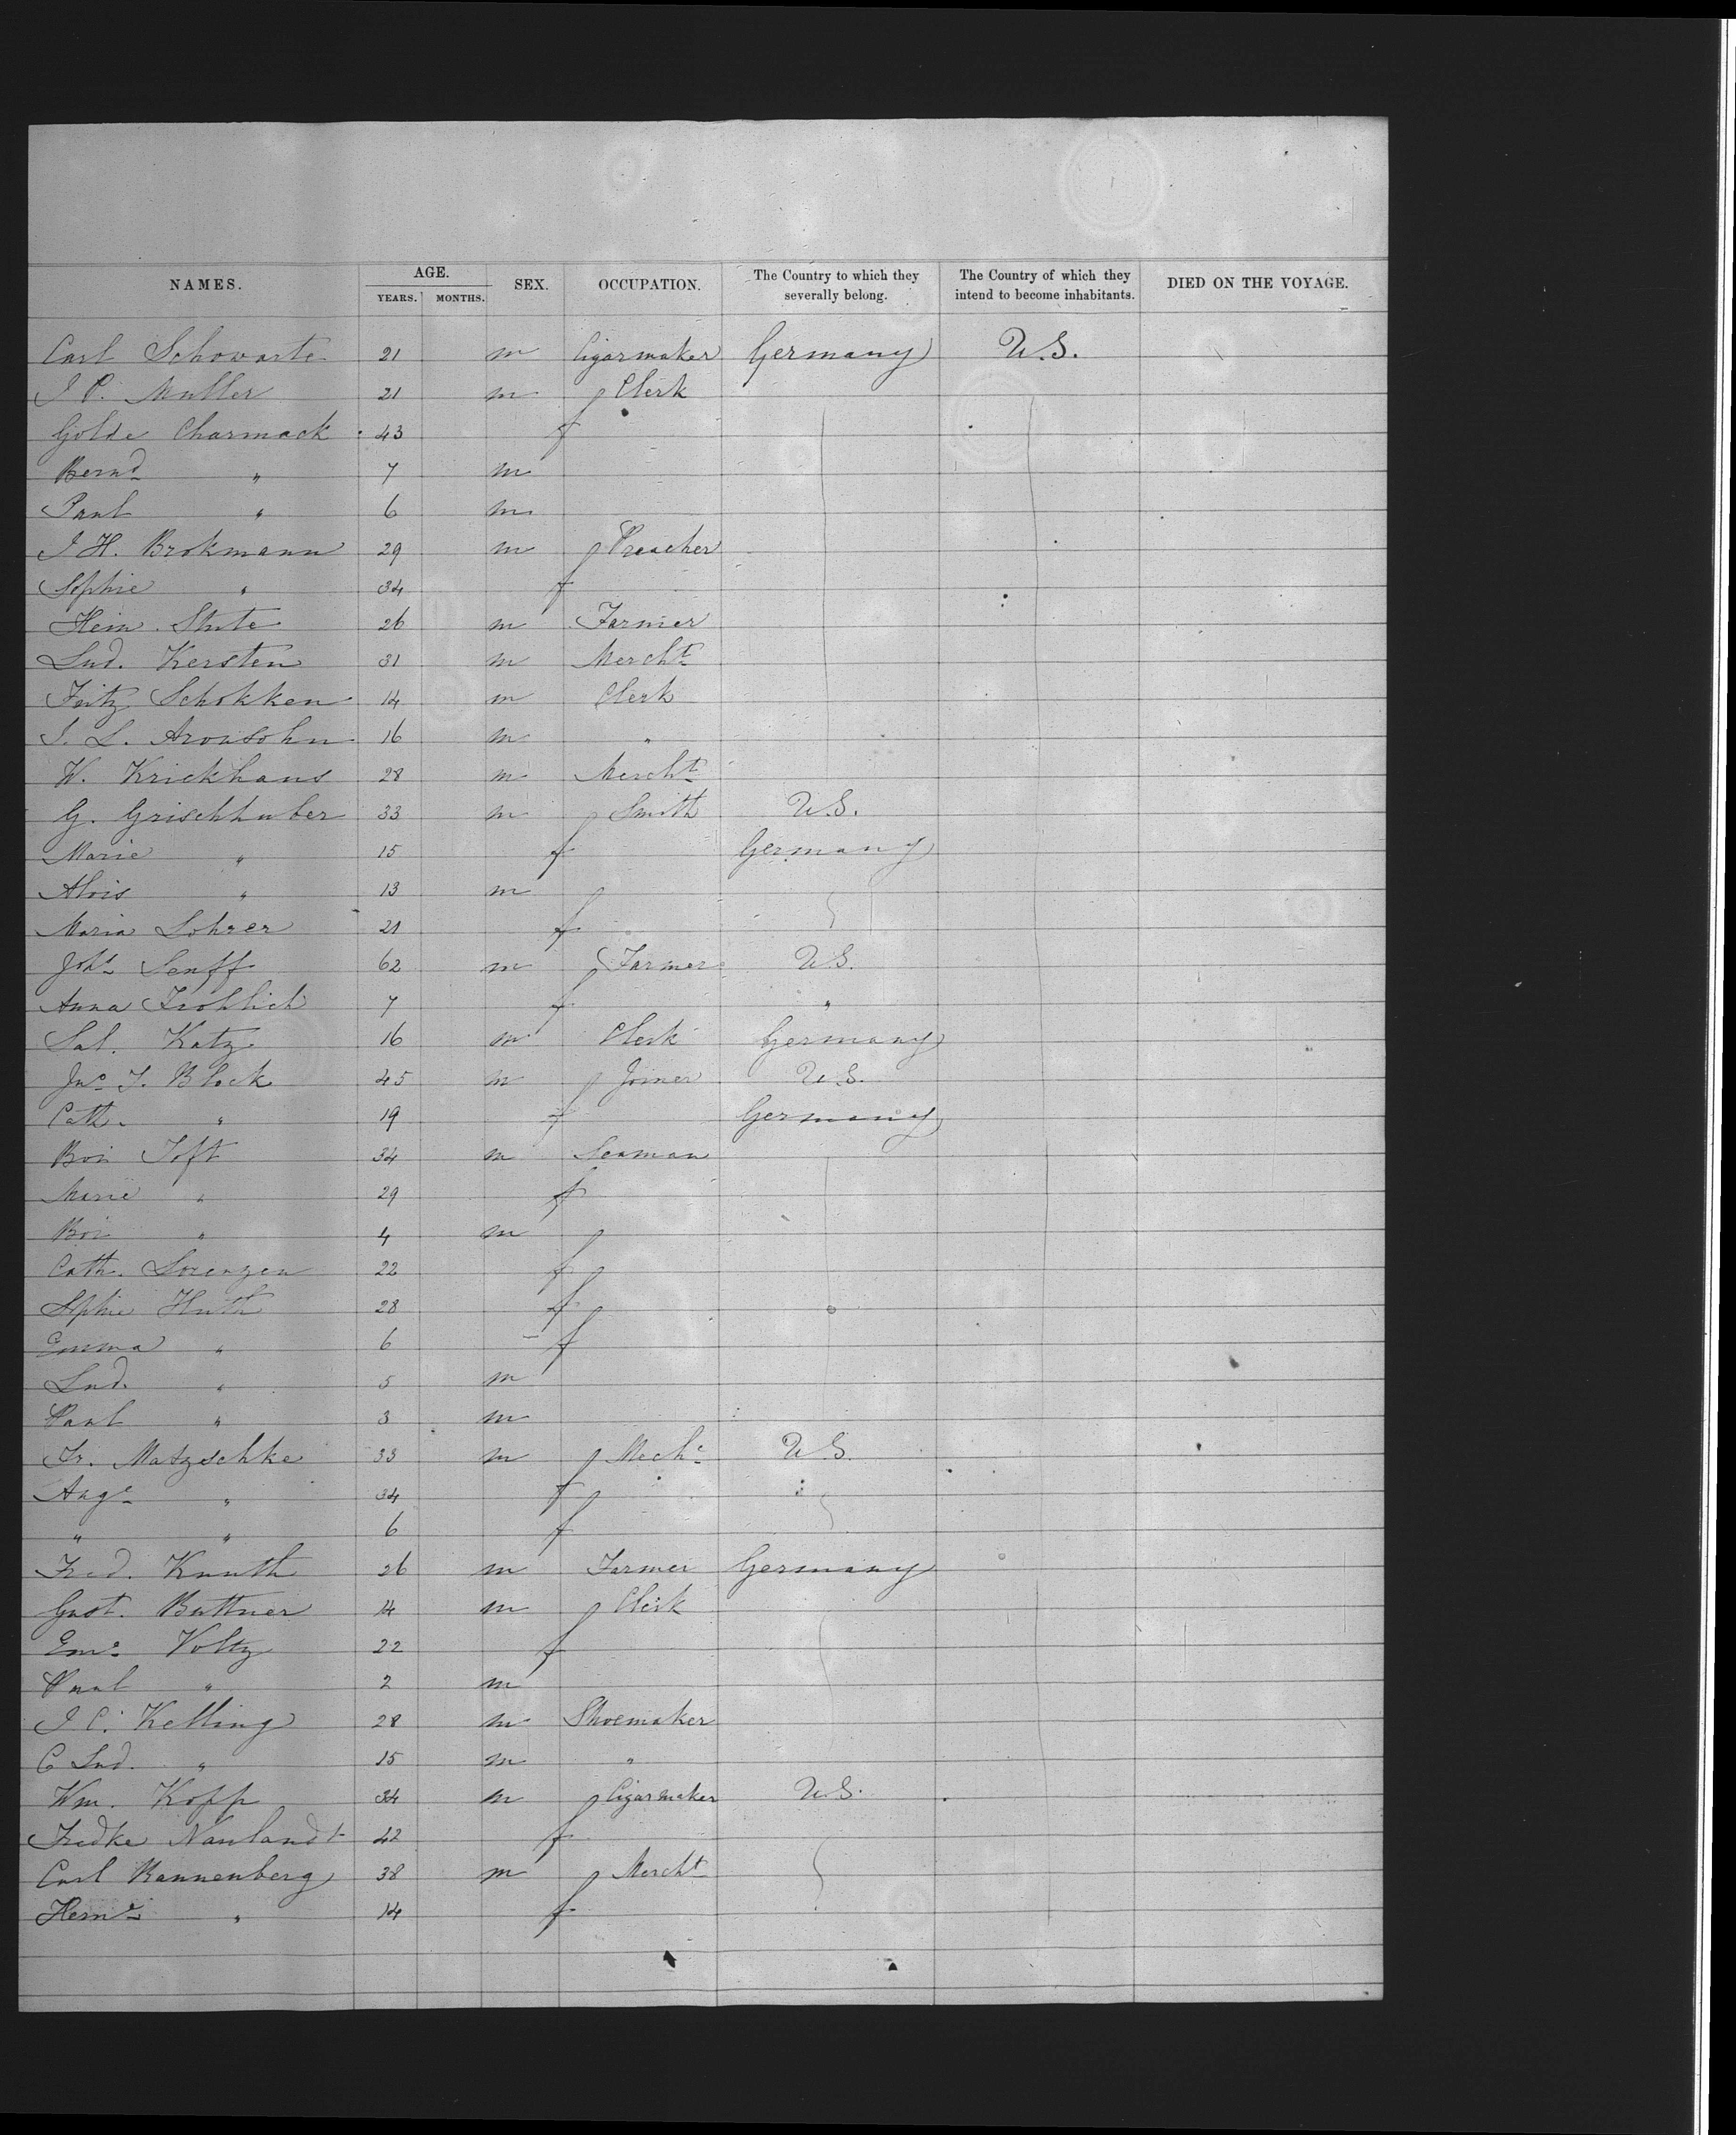 NAMES. AGE. YEARS. MONTHS. SEX. OCCUPATION. The Country to which they severally belong. The Country of which they intend to become inhabitants. DIED ON THE VOYAGE.
Carl Schowarte 21 m Cigarmaker Germany U.S.
J P. Muller 21 m Clerk
Golde Charmack 43 f
Bernd " 7 m
Paul " 6 m
J H. Brokmann 29 m Preacher
Sophie " 34 f
Hein. Stute 26 m Farmer
Lud. Kersten 31 m Mercht
Fritz Schokken 14 m Clerk
J. L. Aronsohn 16 m "
W. Krickhaus 28 m Mercht
G. Grischhuber 33 m Smith U.S.
Marie " 15 f Germany
Alois " 13 m
Maria Lohrer 21 f
Johs Senff 62 m Farmer U.S.
Anna Frohlich 7 f "
Sal. Katz 16 m Clerk Germany
Jno J. Block 45 m Joiner U.S.
Cath. " 19 f Germany
Boi Toft 34 m Seaman
Marie " 29 f
Boi " 4 m
Cath. Lorenzen 22 f
Sophie Huth 28 f
Emma " 6 f
Lud. " 5 m
Paul " 3 m
Fr. Matzschke 33 m Mechc U.S.
Auge " 34 f
" " 6 f
Fred. Knuth 26 m Farmer Germany
Gust. Buttner 14 m Clerk
Eme Voltz 22 f
Paul " 2 m
J C. Kelling 28 m Shoemaker
C Lud. " 15 m "
Wm. Kopp 34 m Cigarmaker U.S.
Fredke Naulandt 42 f
Carl Rannenberg 38 m Mercht
Herme " 14 f